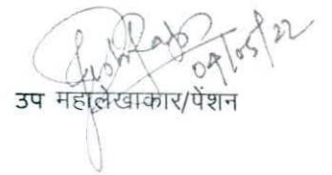 04/05/22
उप महालेखाकार/पेंशन